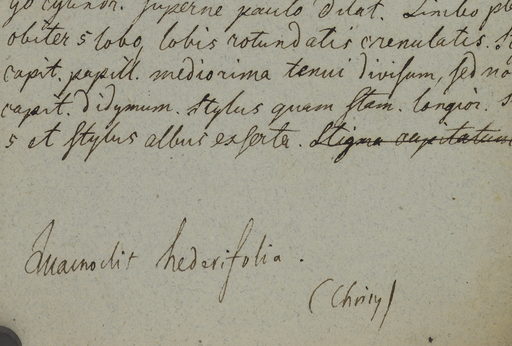 cylindr. superne paulo dilat. Limbo
obiter 5 lobo, lobis rotundatis crenulatis.
capit. papill. mediorima tenui divisum, sed no
capit. didymum. stylus quam stam. longior.
5 et stylus albus exserta. Stigma capitatum
Quamoclit hederifolia.
(Choisy)